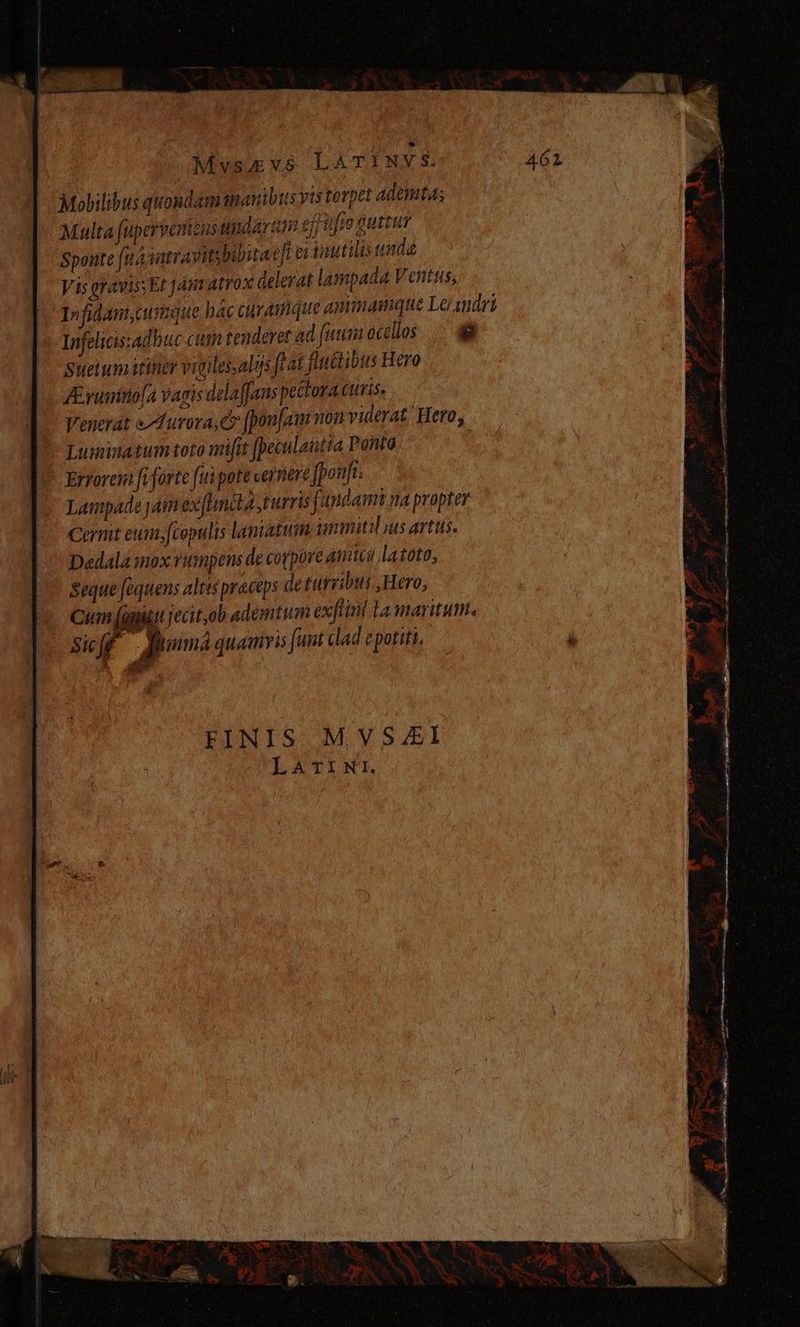 MVSÆVS LATINVS. 461
Mobilibus quondam manibus vis torpet ademta;
Multa ſuperveniens undarum effuſio guttur
Sponte ſuâ intravit; bibita eſt ei inutilis unda
Vis gravis; Et jam atrox delerat lampada Ventus,
Infidam, cumque hâc curamque animamque Leandri
Infelicis: adhuc cum tenderet ad ſuum ocellos
Suetum itiner vigiles, alijs ſtat fluctibus Hero
Ærumnoſa vagis delaſſans pectora curis.
Venerat Aurora, & ſponſam non viderat Hero,
Luminatum toto miſit ſpeculantia Ponto
Errorem ſi forte ſui pote cernere ſponſi:
Lampade jam exſtinctâ, turris fundamina propter
Cernit eum, ſcopulis laniatum immitibus artus.
Dedala mox rumpens de corpore amicula toto,
Seque ſequens altis præceps de turribus, Hero,
Cum ſonitu jecit, ob ademtum exſtincta maritum.
Sic ſummâ quamvis ſunt clade potiti.
FINIS MVSÆI
LATINI.